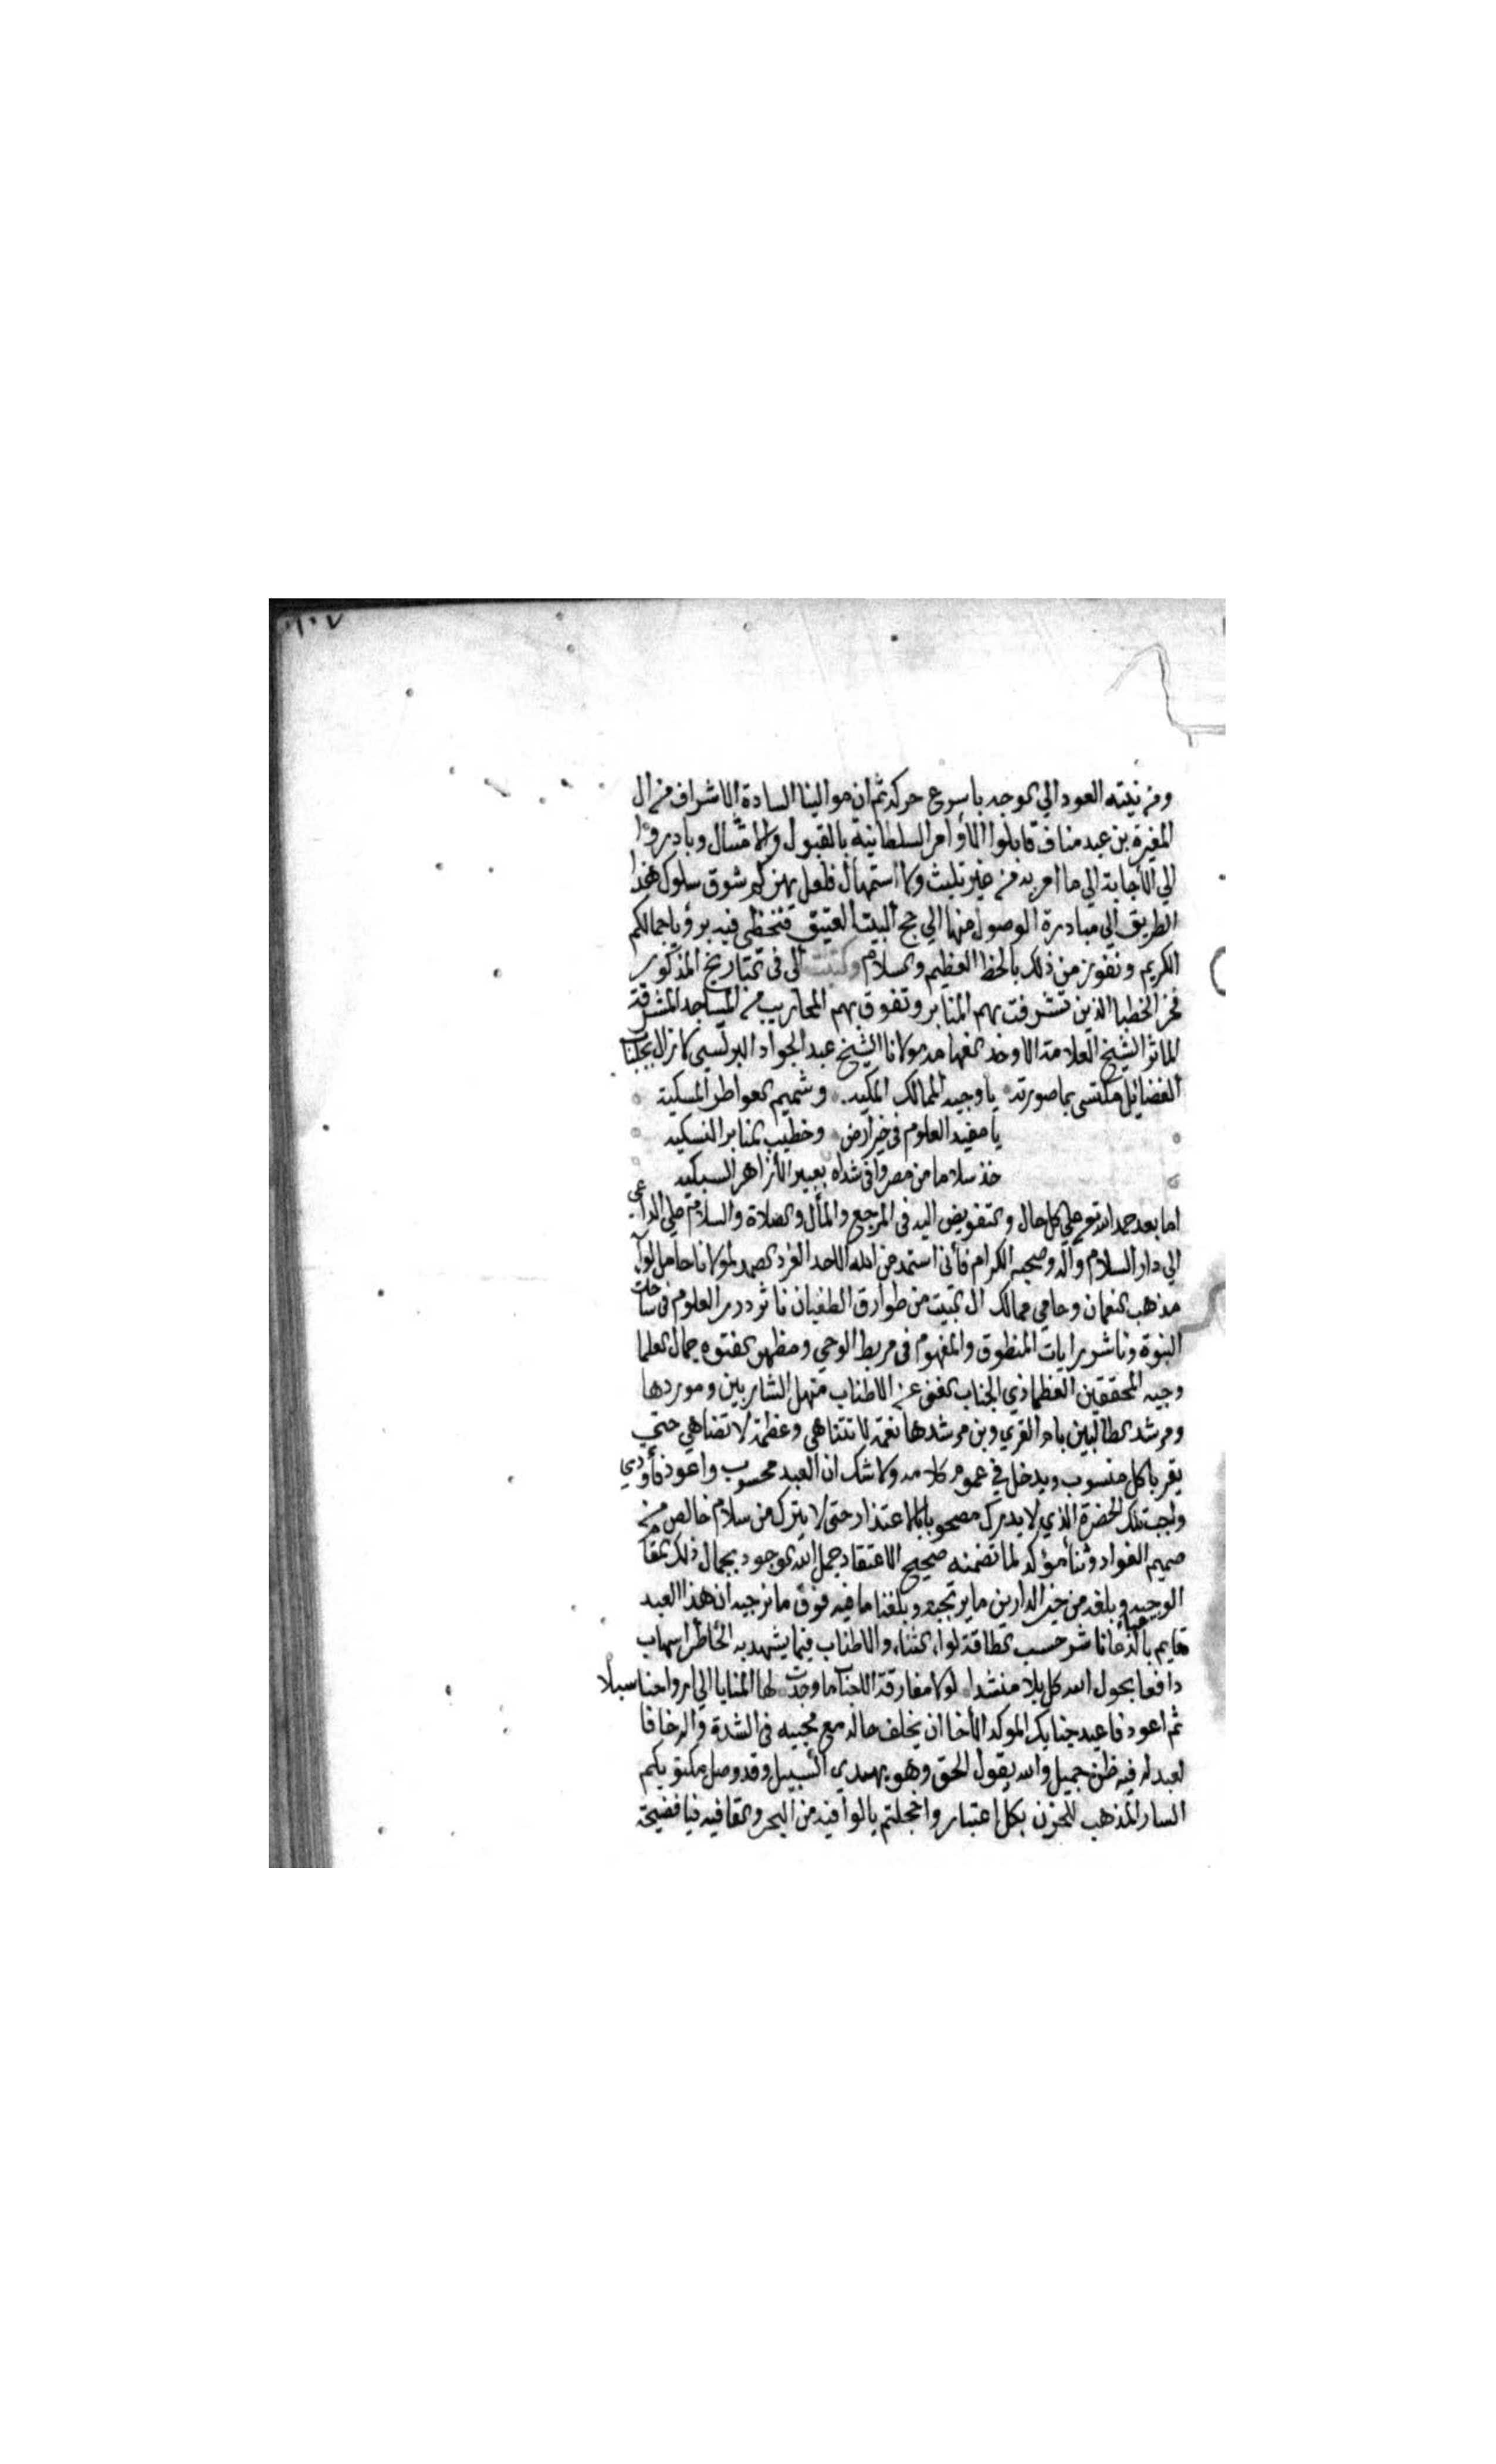 ١٠٧
ومن نيته العود الي الوجه باسرع حركة ثم ان موالينا السادة الاشراف من ال
المغيرة بن عبد مناف قابلوا الاوامر السلطانية بالقبول والامتثال وبادروا
الي الاجابة الي ما امر به من غير تلبث ولا استمهال فلعل يهزكم شوق سلوك هذا
الطريق الي مبادرة الوصول منها الي حج البيت العتيق فنحظي فيه برؤيا جمالكم
الكريم ونفوز من ذلك بالحظ العظيم والسلام وكتبت الي في التاريخ المذكور
فخر الخطبا الذين تشرفت بهم المنابر وتفوق بهم المحاريب من المساجد المشرقة
الماثر الشيخ العلامة الاوحد الفهامه مولانا الشيخ عبد الجواد البرلسي لازال بجلباب
الفضايل مكتسي بما صورته يا وجيه الممالك المكيه وشميم العواطر المسكية
يا مفيد العلوم في خير ارض وخطيب المنابر النسكيه
خذ سلاما من مصر وافي شداه بعبير الازاهر السبكيه
اما بعد حمد الله تع علي كل حال والتفويض اليه في المرجع والمأل والصلاة والسلام علي الداعي
الي دار السلام واله وصحبه الكرام فأني استمد من الله الاحد الفرد الصمد لمولانا حامل لوآء
مذهب النعمان وحامي ممالك ال البيت من طوارق الطغيان ناثر درر العلوم في ساحات
النبوة وناشر رايات المنطوق والمفهوم في مربط الوحي ومظهر الفتوه جمال العلما
وجيه المحققين العظما ذي الجناب الغني عن الاطناب منهل الشاربين وموردها
ومرشد الطالبين بام القري وبن مرشدها نعمة لا تتناهي وعظمة لا تضاهي حتي
يقر با كل منسوب ويدخل في عموم كلامه ولا شك ان العبد محسوب واعود فأودي
واجب تلك الحضرة الذي لا يدرك مصحوبا بالاعتذار حتى لا يترك من سلام خالص من
صميم الفواد وثنأ مؤكد لما تضمنه صحيح الاعتقاد جمل الله الوجود بجمال ذلك المقام
الوجيه وبلغه من خير الدارين ما يرتجيه وبلغنا ما فيه فوق ما نرجيه ان هذا العبد
قايم بالدعا ناشر حسب الطاقة لواء الثناء والاطناب فيما يشهد به الخاطر اسهاب
دافعا بحول الله كل بلا منشدا لولا مفارقة الاحباب ما وجدت لها المنايا الي ارواحنا سبلا
ثم اعود فاعيد جنابك الموكد الاخا ان يخلف حاله مع محبيه في الشدة والرخا فا
لعبد له فيه ظن جميل والله يقول الحق وهو يهدي السبيل وقد وصل مكتوبكم
السار المذهب للحزن بكل اعتبار واخجلتم يالوافيه من البحر والقافيه فيا فضيحة